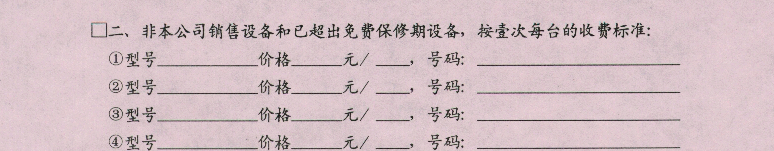 □二、非本公司销售设备和已超出免费保修期设备，按壹次每台的收费标准:
①型号________价格____元/ ___，号码: ________________
②型号________价格____元/ ___，号码: ________________
③型号________价格____元/ ___，号码: ________________
④型号________价格____元/ ___，号码: ________________